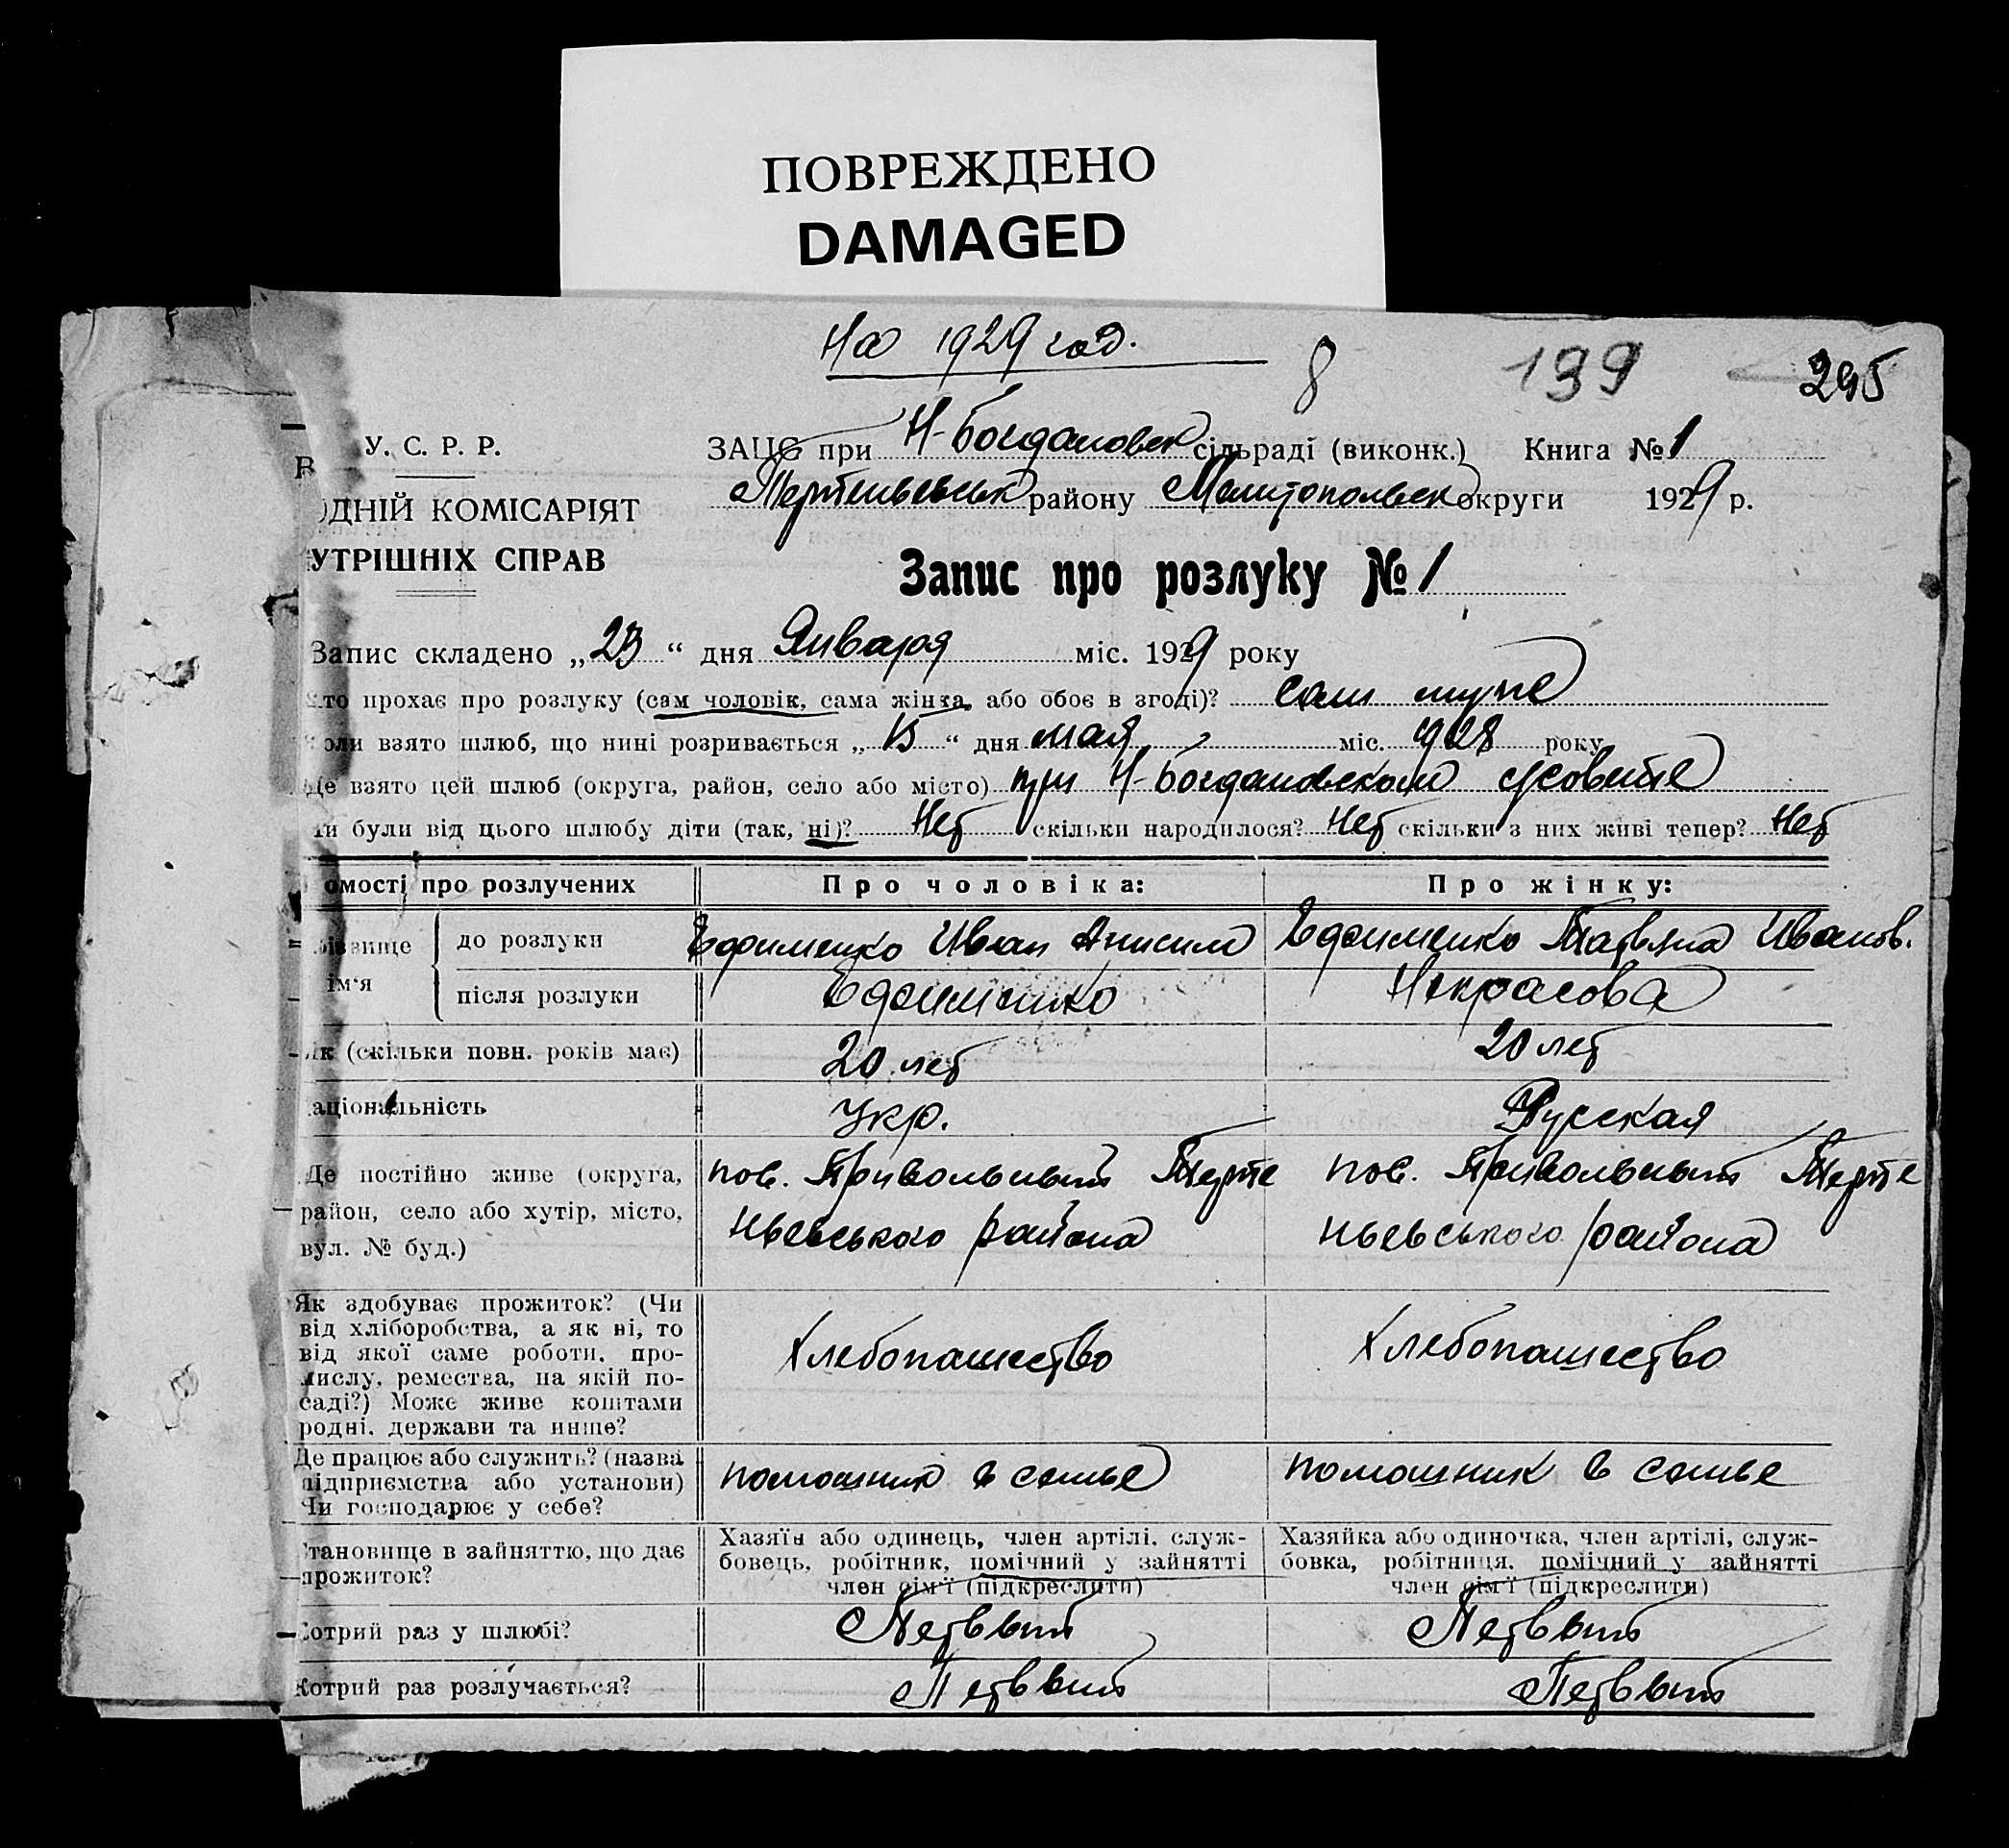 ПОВРЕЖДЕНО
DAMAGED
На 1929 год.
8 199 295
У. С. Р. Р.
ЗАЦС при Н-Богдановск сільраді (виконк.) Книга № 1
В
ОДНІЙ КОМІСАРІЯТ
Терпеньевськ району Мелитопольск округи 1929 р.
УТРІШНІХ СПРАВ
Запис про розлуку № 1
Запис складено „23“ дня Января міс. 1929 року
то прохає про розлуку (сам чоловік, сама жінка, або обоє в згоді)? сам муже
оли взято шлюб, що нині розривається „15“ дня мая міс. 1928 року
Де взято цей шлюб (округа, район, село або місто) при Н-Богдановском с/совете
и були від цього шлюбу діти (так, ні)? Нет скільки народилося? Нет скільки з них живі тепер? Нет
омості про розлучених Про чоловіка: Про жінку:
ізвище до розлуки Ефименко Иван Анисим Ефименко Татьяна Иванов.
ім'я після розлуки Ефименко Некрасова
ік (скільки повн. років має) 20 лет 20 лет
аціональність Укр. Русская
Де постійно живе (округа, пос. Привольный Терпе пос. Привольный Терпе
район, село або хутір, місто, ньевського района ньевського района
вул. № буд.)
Як здобуває прожиток? (Чи
від хліборобства, а як ні, то
від якої саме роботи, про-
мислу, ремества, на якій по-
саді?) Може живе коштами
родні, держави та инше?
Хлебопашество Хлебопашество
Де працює або служить? (назва
підприємства або установи)
Чи господарює у себе?
помошник в семье помошник в семье
тановище в зайняттю, що дає
прожиток?
Хазяїн або одинець, член артілі, служ-
бовець, робітник, помічний у зайнятті
член сім'ї (підкреслити)
Хазяйка або одиночка, член артілі, служ-
бовка, робітниця, помічний у зайнятті
член сім'ї (підкреслити)
Котрий раз у шлюбі? Первый Первый
Котрий раз розлучається? Первый Первый